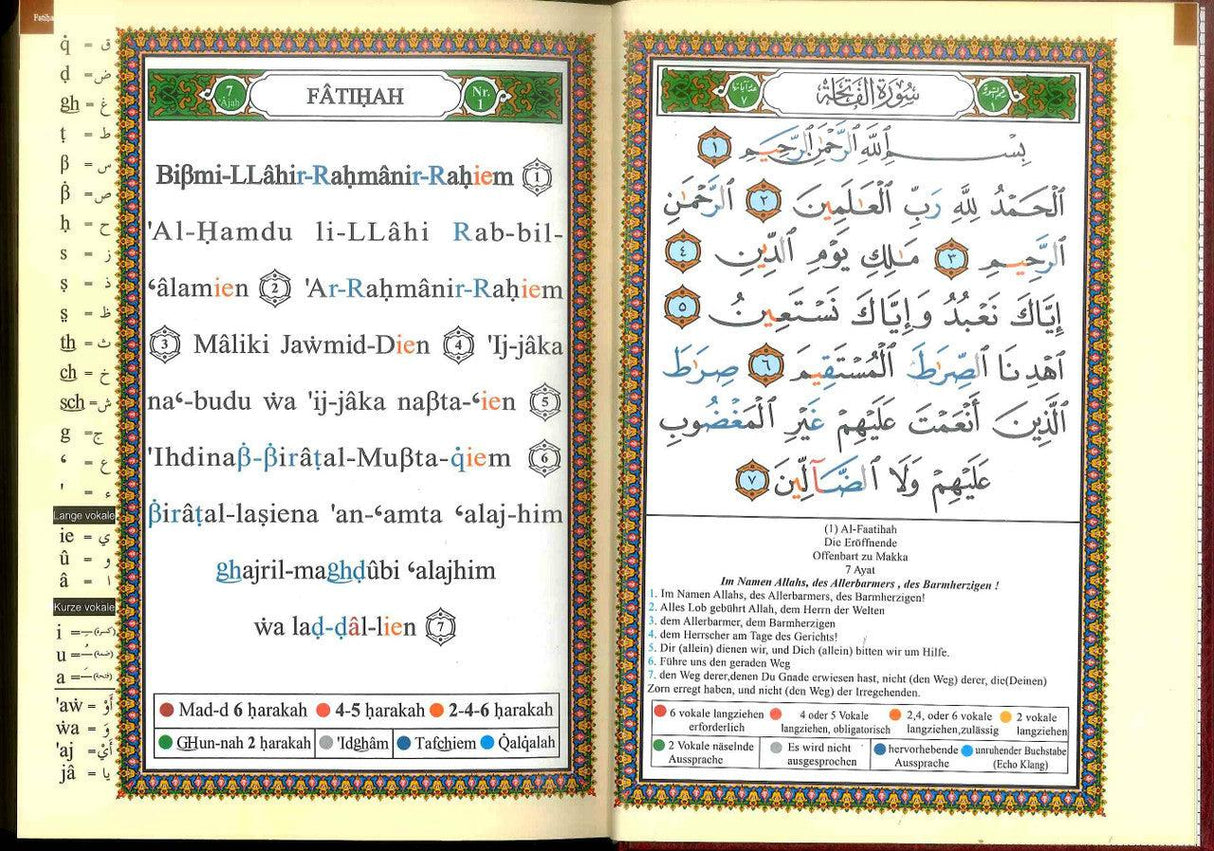 Fatiha
q̇ = ق
ḍ = ض
gh = غ
ṭ = ط
β = س
β̇ = ص
ḥ = ح
s = ز
ṣ = ذ
ṣ̱ = ظ
th = ث
ch = خ
sch = ش
g = ج
ʻ = ع
' = ء
Lange vokale
ie = ي
û = و
â = ا
Kurze vokale
i = (كسرة)
u = (ضمة)
a = (فتحة)
'aẇ = أَوْ
ẇa = وَ
'aj = أَيْ
jâ = يا
7 Âjah
FÂTIḤAH
Nr. 1
Biβmi-LLâhir-Raḥmânir-Raḥiem 1
'Al-Ḥamdu li-LLâhi Rab-bil-
ʻâlamien 2 'Ar-Raḥmânir-Raḥiem
3 Mâliki Jaẇmid-Dien 4 'Ij-jâka
naʻ-budu ẇa 'ij-jâka naβta-ʻien 5
'Ihdinaβ̇-β̇irâṭal-Muβta-q̇iem 6
β̇irâṭal-laṣiena 'an-ʻamta ʻalaj-him
ghajril-maghḍûbi ʻalajhim
ẇa laḍ-ḍâl-lien 7
Mad-d 6 ḥarakah 4-5 ḥarakah 2-4-6 ḥarakah
GHun-nah 2 ḥarakah 'Idghâm Tafchiem Q̇alq̇alah
سُورَةُ الْفَاتِحَةِ
بِسْمِ ٱللَّهِ ٱلرَّحْمَٰنِ ٱلرَّحِيمِ ١
ٱلْحَمْدُ لِلَّهِ رَبِّ ٱلْعَٰلَمِينَ ٢ ٱلرَّحْمَٰنِ
ٱلرَّحِيمِ ٣ مَٰلِكِ يَوْمِ ٱلدِّينِ ٤
إِيَّاكَ نَعْبُدُ وَإِيَّاكَ نَسْتَعِينُ ٥
ٱهْدِنَا ٱلصِّرَٰطَ ٱلْمُسْتَقِيمَ ٦ صِرَٰطَ
ٱلَّذِينَ أَنْعَمْتَ عَلَيْهِمْ غَيْرِ ٱلْمَغْضُوبِ
عَلَيْهِمْ وَلَا ٱلضَّآلِّينَ ٧
(1) Al-Faatihah
Die Eröffnende
Offenbart zu Makka
7 Ayat
Im Namen Allahs, des Allerbarmers , des Barmherzigen !
1. Im Namen Allahs, des Allerbarmers, des Barmherzigen!
2. Alles Lob gebührt Allah, dem Herrn der Welten
3. dem Allerbarmer, dem Barmherzigen
4. dem Herrscher am Tage des Gerichts!
5. Dir (allein) dienen wir, und Dich (allein) bitten wir um Hilfe.
6. Führe uns den geraden Weg
7. den Weg derer,denen Du Gnade erwiesen hast, nicht (den Weg) derer, die(Deinen)
Zorn erregt haben, und nicht (den Weg) der Irregehenden.
6 vokale langziehen 4 oder 5 Vokale 2,4, oder 6 vokale 2 vokale
erforderlich langziehen, obligatorisch langziehen,zulässig langziehen
2 Vokale näselnde Es wird nicht hervorhebende unruhender Buchstabe
Aussprache ausgesprochen Aussprache (Echo Klang)